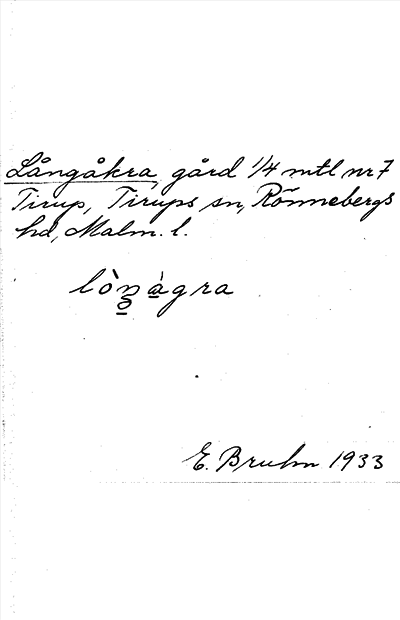 Långåkra gård 1/4 mtl nr 7
Tirup, Tirups sn, Rönnebergs
hd, Malm. l.
lòŋàgra
E. Bruhn 1933